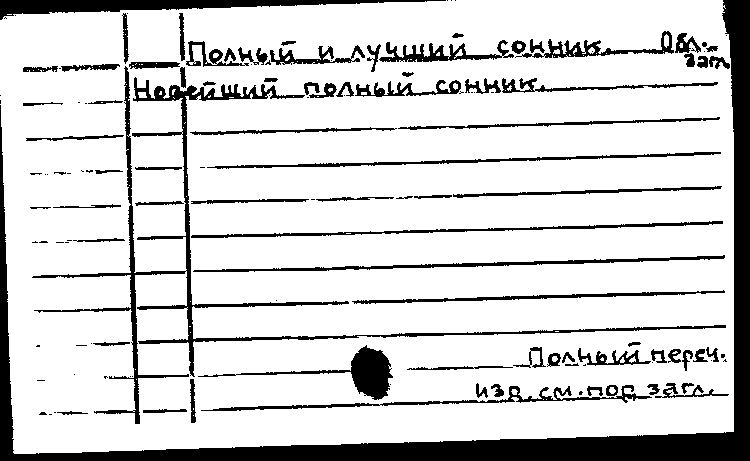 Полный и лучший сонник. Обл.
загл.
Новейший полный сонник.
Полный переч.
изд. см. под загл.